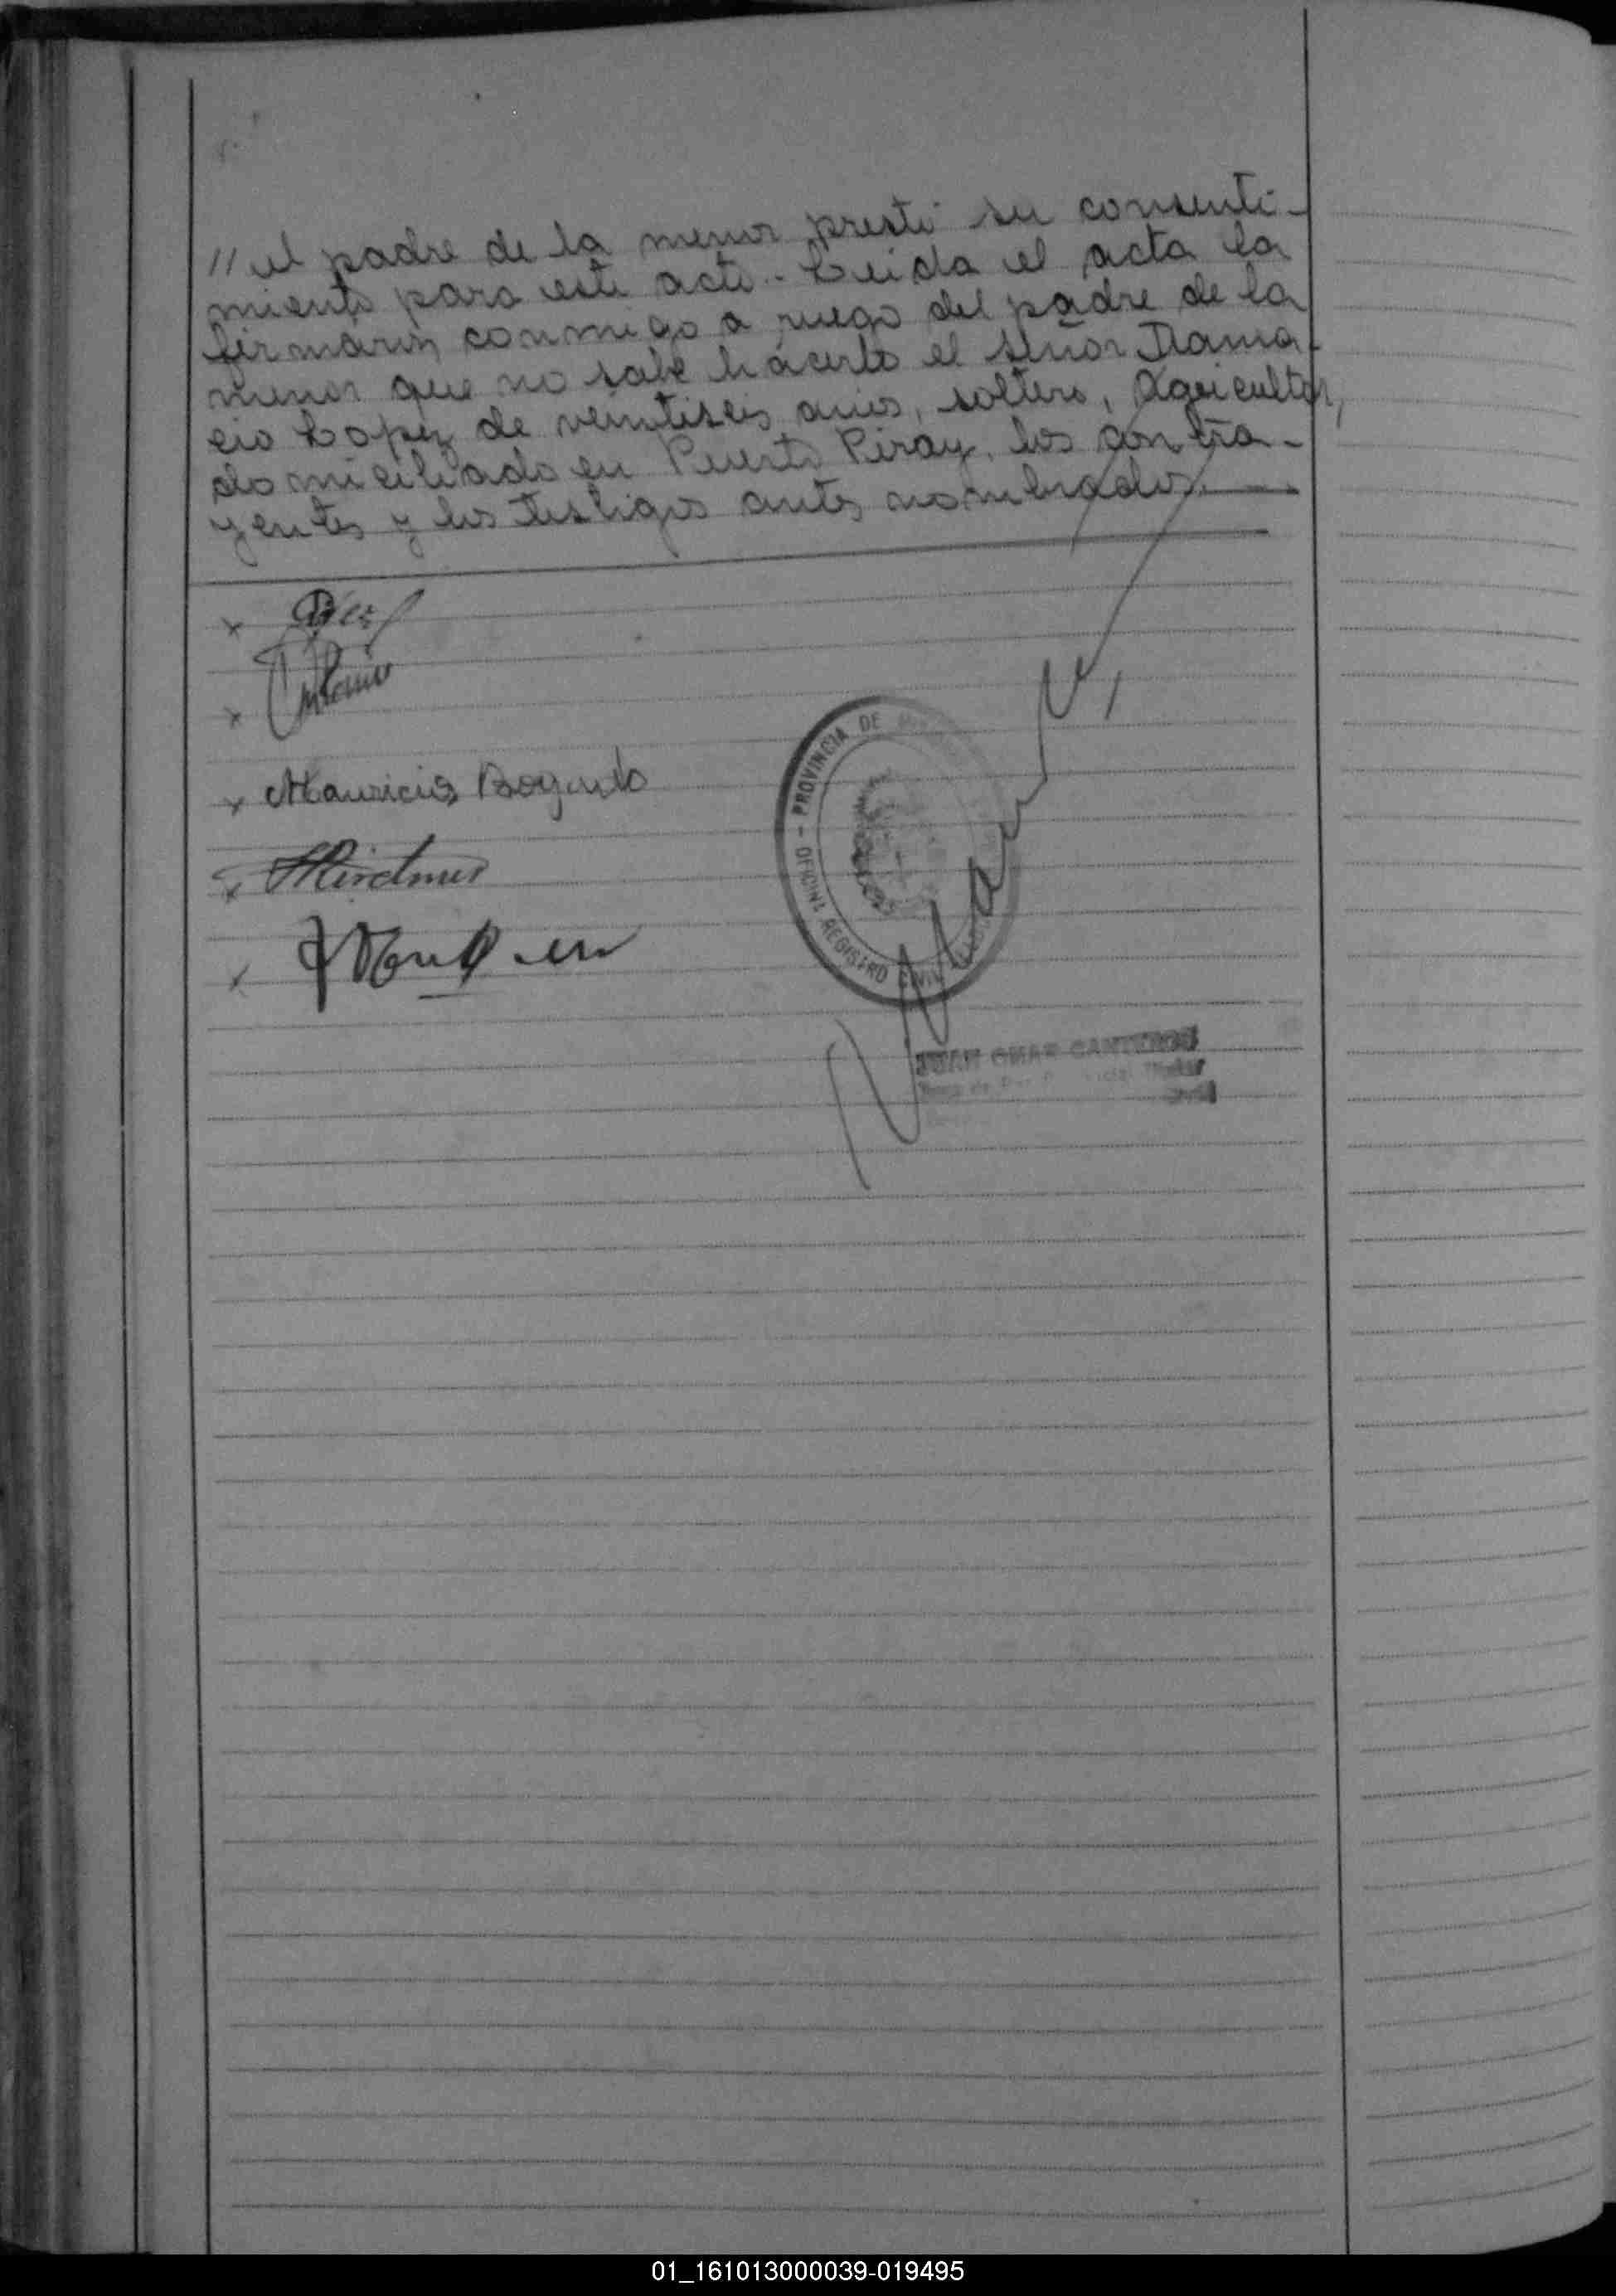 // el padre de la menor prestó su consenti-
miento para este acto.- Leida el acta la
firmaron conmigo a ruego del padre de la
menor que no sabe hacerlo el señor Dama-
cio Lopez de veintiseis años, soltero, Agricultor,
domiciliado en Puerto Piray, los contra-
yentes y los testigos antes nombrados.
x
x Antonio
x Mauricio Bogado
x
x
OFICINA REGISTRO CIVIL - PROVINCIA DE
JUAN OMAR CANTEROS
01_161013000039-019495